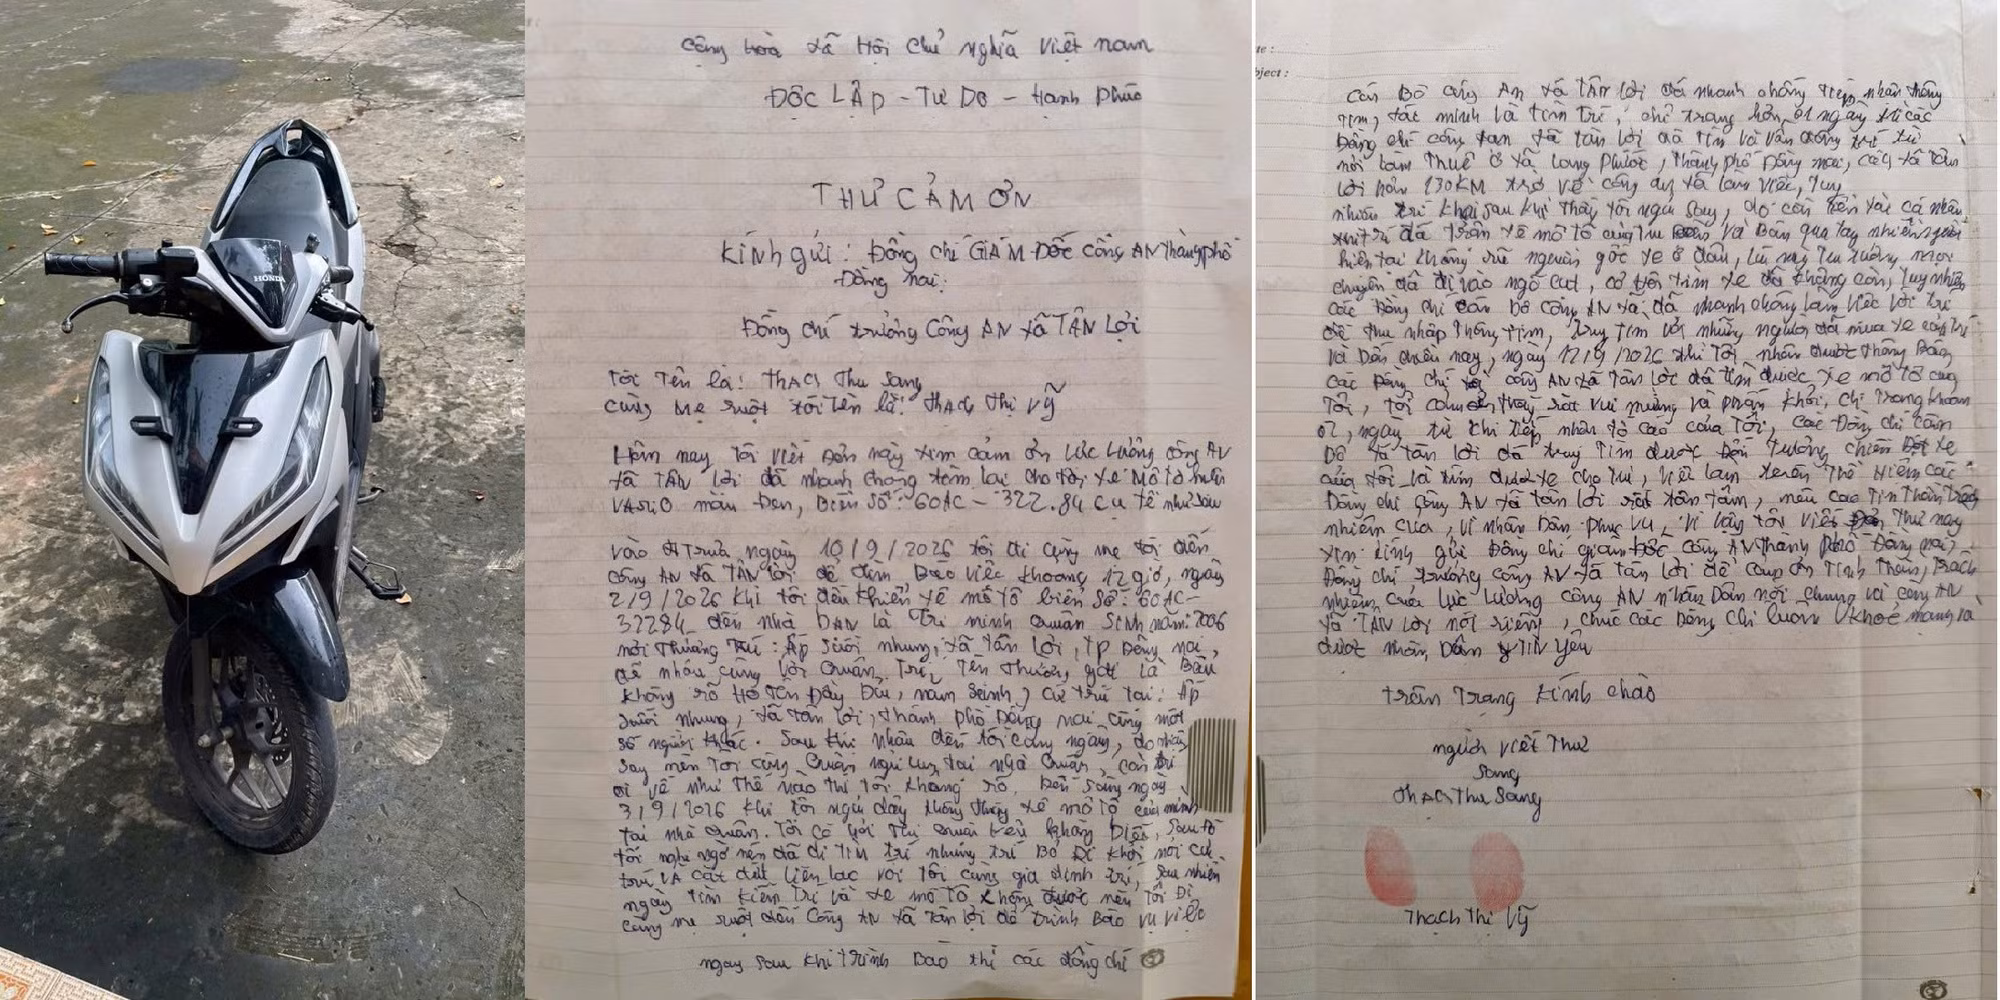 HONDA
Cộng hoà xã Hội Chủ nghĩa Việt nam
ĐỘC LẬP - TỰ DO - Hạnh Phúc
THƯ CẢM ƠN
Kính gửi: Đồng chí GIÁM ĐỐC CÔNG AN Thành phố
Đồng nai:
Đồng chí trưởng Công AN xã TÂN Lợi
Tôi Tên là: Thạch Thu Sang
cùng mẹ ruột tôi tên là: Thạch Thị Vỹ
Hôm nay tôi viết đơn này xin cảm ơn lực lượng công AN
xã TÂN lợi đã nhanh chóng tìm lại cho tôi xe Mô tô
VARIO màu Đen, Biển Số: 60AC - 322.84 cụ tể như sau
vào trưa ngày 10/9/2026 tôi đi cùng mẹ tôi đến
công AN xã TÂN lợi để trình Báo việc khoảng 12 giờ, ngày
2/9/2026 khi tôi điều khiển xe mô tô biển số: 60AC-
32284 đến nhà BẠN là Trí minh Quân SINH năm: 2006
nơi Thường Trú: Ấp Suối nhung, xã tân lời, TP Đồng nai,
để nhậu cùng với Quân, Trí, Tên Thường gọi là
không rõ Họ Tên Đầy Đủ, nam Sinh, cư trú tại: Ấp
Suối nhung, xã tân lời, thành phố Đồng nai cùng một
số người khác. Sau khi nhậu đến tối cùng ngày, do
say nên Tôi cùng Quân ngủ tại nhà Quân, còn trí
đi về như thế nào thì tôi không rõ. Đến sáng ngày
3/9/2026 khi tôi ngủ dậy không thấy xe mô tô của mình
tại nhà Quân. Tôi có hỏi Thì Quân không Biết, Sau đó
tôi nghi ngờ nên đã đi TÌM trí nhưng trí Bỏ Đi khỏi nơi cư
trú VÀ cắt đứt liên lạc với tôi cùng gia đình trí, sau nhiều
ngày tìm kiếm Trí và xe mô tô không được nên tôi Đi
cùng mẹ ruột đến Công AN xã Tân lợi để trình Báo vụ việc
ngay sau khi trình Báo thì các đồng chí
ject:
cán Bộ công AN xã TÂN lợi đã nhanh chóng tiếp nhận thông
tin, xác minh là tìm Trí, chỉ trong hơn 01 ngày thì các
Đồng chí công an xã tân lời đã tìm và vận động trí từ
nơi làm Thuê ở xã long Phước, thành phố Đồng nai, cách xã Tân
lời hơn 130KM trở về công an xã làm việc, Tuy
nhiên trí khai sau khi thấy tôi ngủ say, do cần tiền xài cá nhân
trí đã trộm xe mô tô của và Bán qua tay nhiều người
hiện tại không rõ nguồn gốc xe ở đâu, lúc này mọi
chuyện đã đi vào ngõ cụt, cơ hội tìm xe đã không còn, tuy nhiên
các Đồng chí cán bộ công AN xã đã nhanh chóng làm việc với trí
để thu nhập Thông Tin, truy tìm với những người đã mua xe
và Đến chiều nay, ngày 12/9/2026 khi Tôi nhận được Thông Báo
các Đồng chí công AN xã Tân lợi đã tìm được xe mô tô của
Tôi, tôi cảm thấy rất vui mừng và phấn khởi, chỉ trong khoảng
02 ngày từ khi tiếp nhận tố cáo của Tôi, các Đồng chí cán
Bộ xã tân lời đã truy tìm được Đối tượng chiếm Đoạt xe
của tôi và tìm được xe cho tôi, việc làm trên Thể Hiện các
Đồng chí công AN xã tân lời rất tận tâm, nêu cao Tinh Thần trách
nhiệm của, vì nhân dân phục vụ, vì vậy tôi viết Thư này
xin kính gửi Đồng chí giám Đốc công AN Thành phố Đồng nai,
Đồng chí trưởng công AN xã tân lời để cảm ơn Tinh Thần, Trách
nhiệm của lực lượng công AN nhân Dân nói chung và công AN
xã TÂN lời nói riêng, chúc các Đồng chí luôn khoẻ mạnh và
được nhân Dân TIN yêu
Trân Trọng Kính chào
người viết Thư
Sang
Thạch Thu Sang
Thạch Thị Vỹ